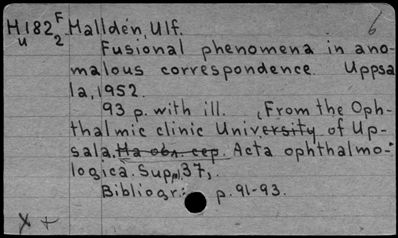 H182 F Halldén, Ulf. 6
u 2 Fusional phenomena in ano-
malous correspondence. Uppsa
la, 1952.
93 p. with ill. (From the Oph-
thalmic clinic University of Up-
sala. На обл. сер. Acta ophthalmo-
logica. Suppl. 37,
Bibliogr.: p. 91-93.